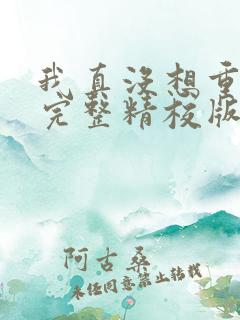 我真没想重
完整精校版
阿古桑
未经同意禁止转载